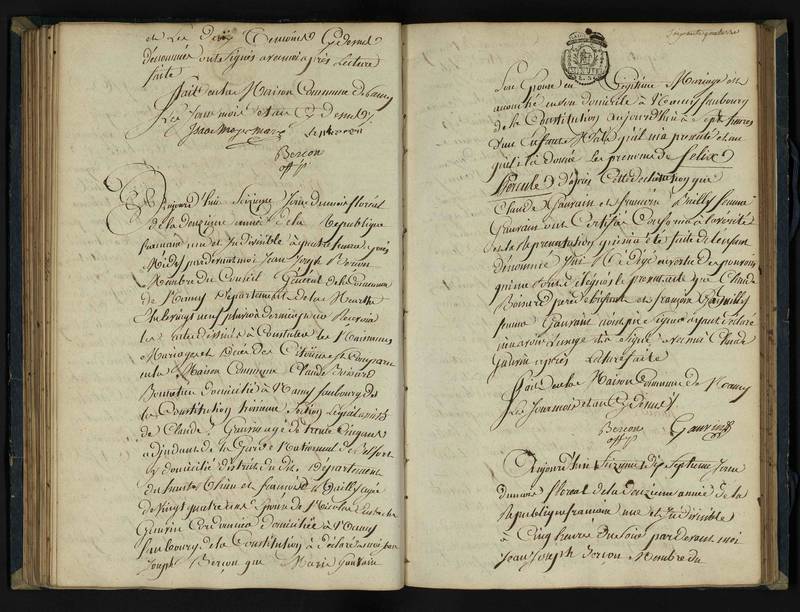 et les deux temoins cydessus
dénommés ont signés avec moi après lecture
faite
fait en la Maison Commune de Nancy
Les jour mois et an cy dessus
Isaac Mayer Marx
Berson
off p
Aujourd'hui Seizieme jour du mois floréal
de la deuxieme année de la République
francaise une et Indivisible à quatre heures après
Midy pardevant moi Jean Joseph Berson
Membre du Conseil Général de la Commune
de Nancy Département de la Meurthe
les actes destinés à Constater les Naissances
Mariages et Décés des Citoyens est Comparu
en la Maison Commune Claude Boisard
domicilié à Nancy faubourg de
la Constitution
de Claude Gauvain agé de trente cinq ans
adjudant de la Garde Nationale de
domicilié district du dit Département
et françoise Bailly agée
de vingt quatre ans Epouse de Nicolas
Gauvain Cordonnier domiciliée à Nancy
faubourg de la Constitution à déclaré à moi Jean
Joseph Berson que Marie Gauvain
Son Epouse en Légitime Mariage est
accouchée en son domicile à Nancy faubourg
de la Constitution aujourd'hui à Sept heures
d'un Enfant Mâle qu'il m'a presenté et au
quel il a donné les prénoms de Felix
Hercule d'après Cette déclaration que
Claude Gauvain et françoise Bailly femme
Gauvain ont Certifié Conforme à la vérité
et la présentation qui m'a été faite de l'enfant
dénommé J'ai rédigé en vertu des pouvoirs
qui me sont délégués le present acte que Claude
Boisard père de l'enfant et françoise Bailly
femme Gauvain n'ont pas signé ayant déclaré
n'en avoir l'usage et a signé avec moi Claude
Gauvain après Lecture faite
fait en la Maison Commune de Nancy
Les Jour mois et an Cy dessus
Berson
off p
Gauvain
Aujourd'hui Dix Septieme Jour
du mois floreal de la deuxieme année de la
République francaise une et Indivisible
à Cinq heures du Soir pardevant moi
Jean Joseph Berson Membre du